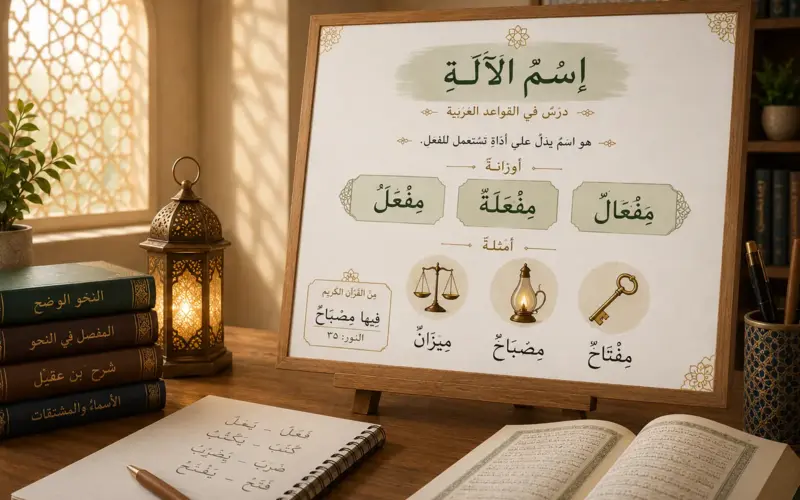 إِسْمُ الْآلَةِ
درسٌ في القواعد العربية
هو اسمٌ يدلُّ على أداةٍ تستعمل للفعل.
أوزانهُ
مِفْعَالٌ
مِفْعَلَةٌ
مِفْعَلُ
أمثلةٌ
مِفْتَاحٌ
مِصْبَاحٌ
مِيزَانٌ
مِنَ القُرْآنِ الكَرِيم
فِيهَا مِصْبَاحٌ
النور: ٣٥
النحو الوضح
المفصل في النحو
شرح بن عقيل
الأسماء والمشتقات
فَعَلَ - يَفعَل
كَتَبَ - يَكْتُبُ
ضَرَبَ - يَضْرِبُ
فَتَحَ - يَفْتَحُ